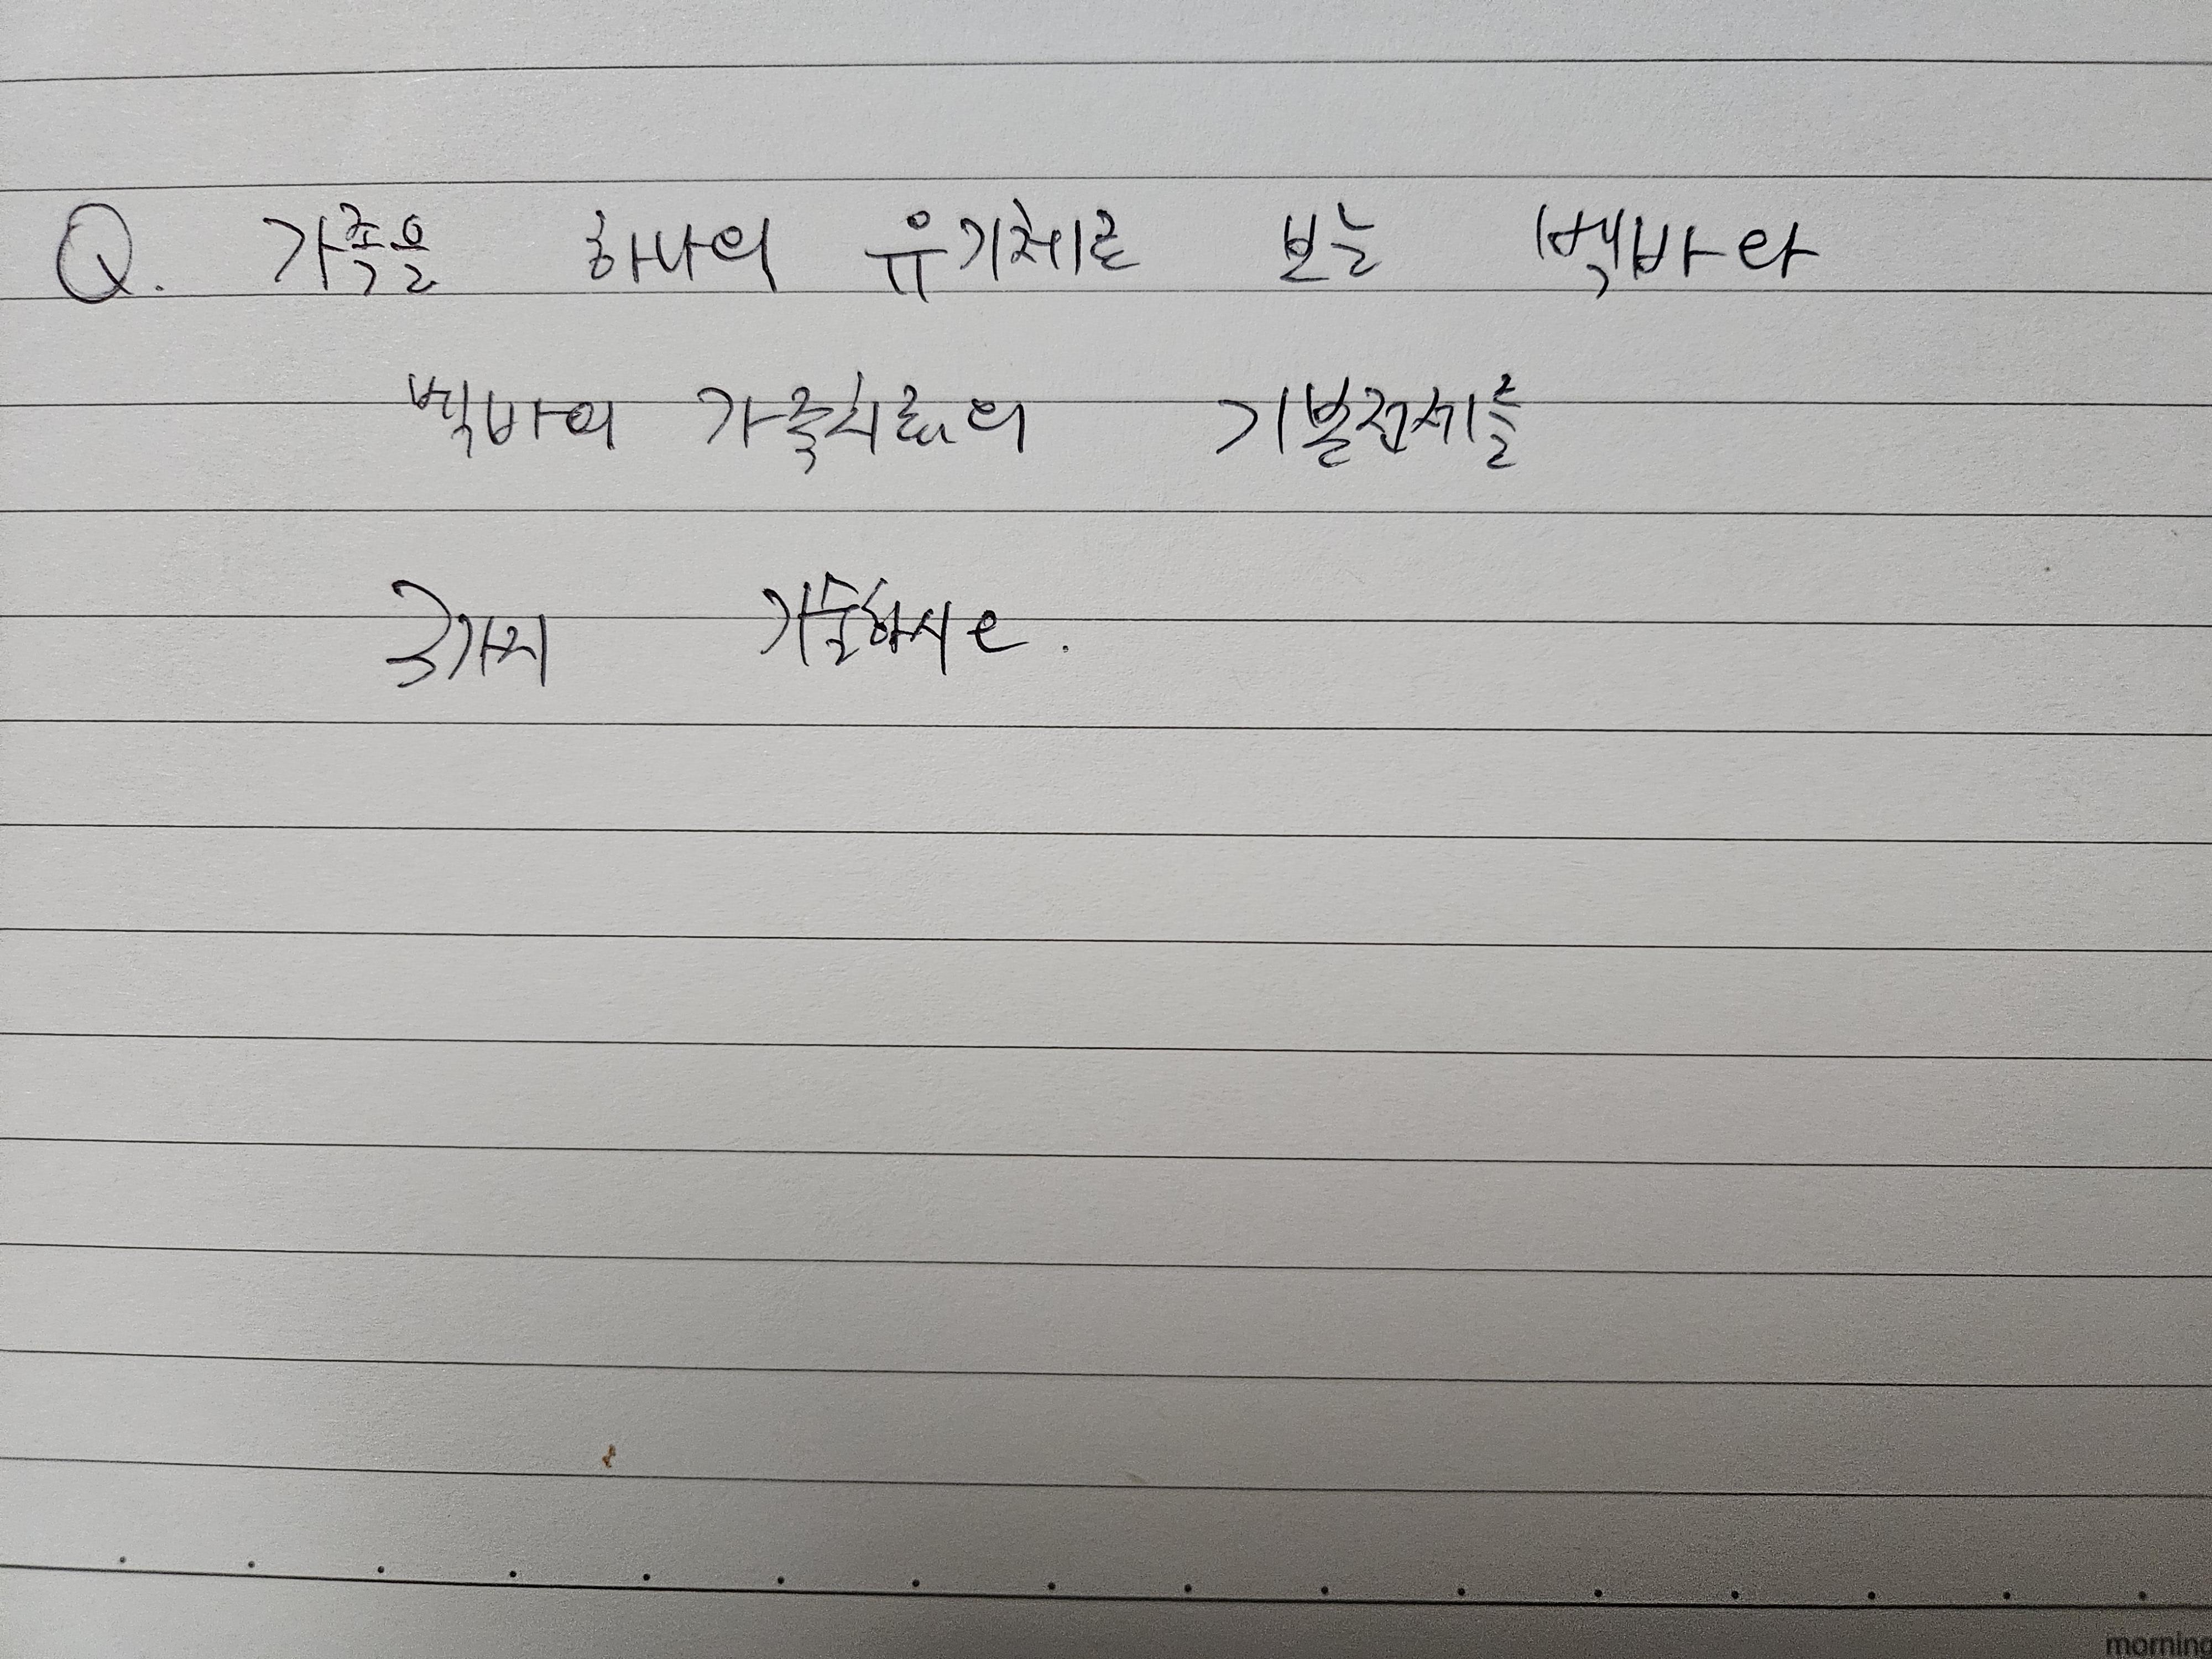 Q. 가족을 하나의 유기체로 보는 벡바와
벡바의 가족치료의 기본전제를
3가지 기술하시오.
morning